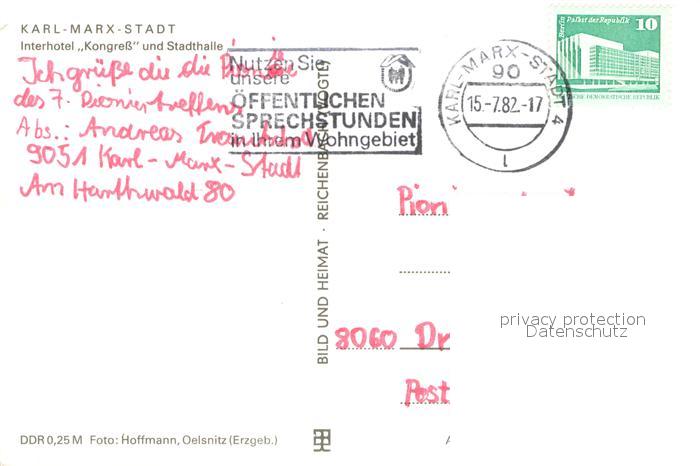 KARL-MARX-STADT
Interhotel „Kongreß" und Stadthalle
Ich grüße die die
des 7. Pioniertreffens
Abs.: Andreas
9051 Karl-Marx-Stadt
Am Harthwald 80
Nutzen Sie
unsere
ÖFFENTLICHEN
SPRECHSTUNDEN
in Ihrem Wohngebiet
KARL-MARX-STADT 4
90
15.-7.82.-17
Berlin Palast der Republik 10
DEUTSCHE DEMOKRATISCHE REPUBLIK
BILD UND HEIMAT · REICHENBACH (VOGTL)
Pioni
8060 Dr
Post
privacy protection
Datenschutz
DDR 0,25 M Foto: Hoffmann, Oelsnitz (Erzgeb.)